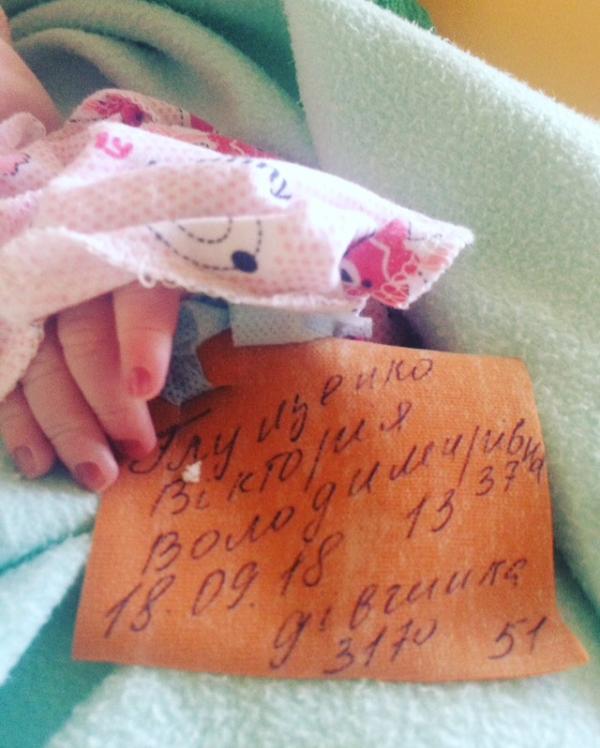 Глущенко
Вікторія
Володимирівна
18.09.18 13 37
дівчинка
3170 51